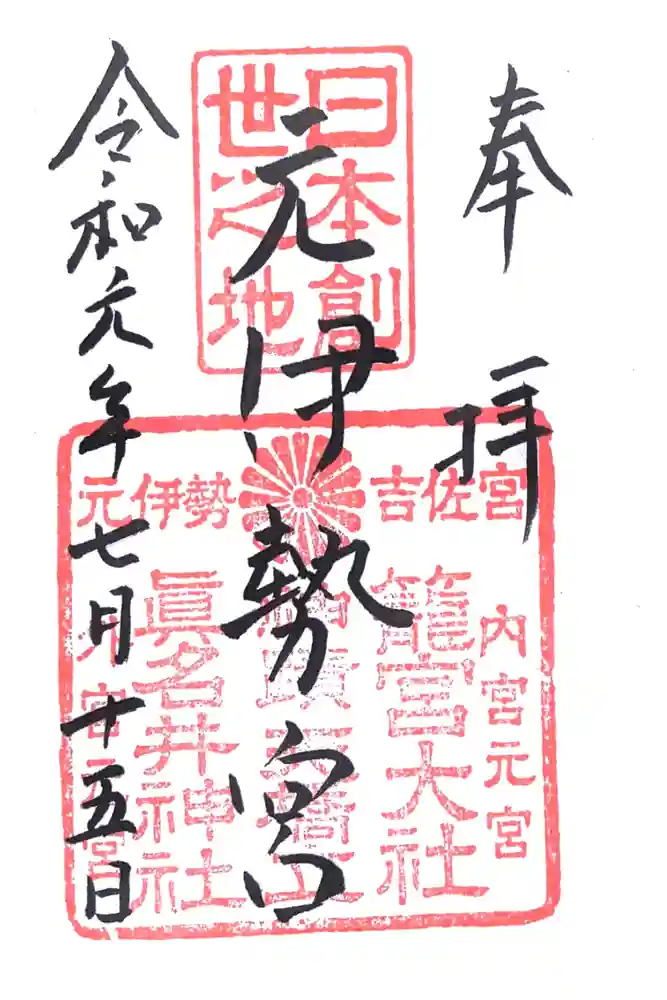 奉拝
元伊勢宮
令和元年七月十五日
日本創
世之地
元伊勢 吉佐宮
内宮元宮
籠宮大社
蹟天橋立
眞名井神社
外宮元宮